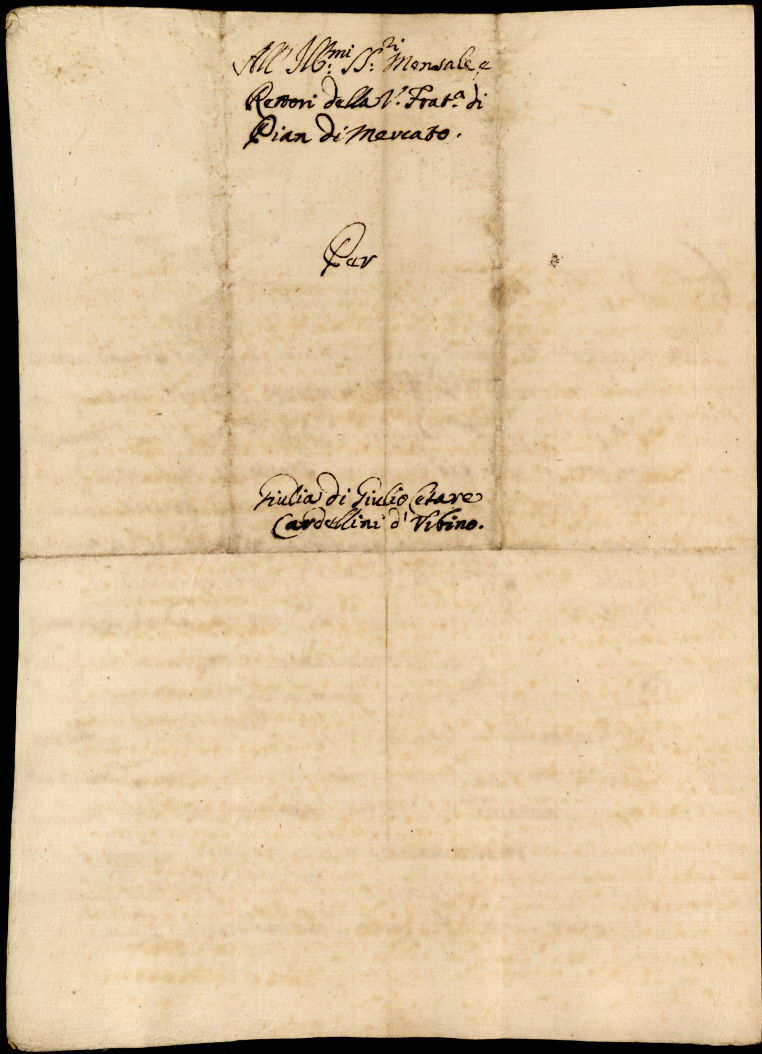 All' Ill:mi SS:ri Mensale, e
Rettori della V. Frat.a di
Pian di Mercato.
Per
Giulia di Giulio Cesare
Cardellini d' Vrbino.